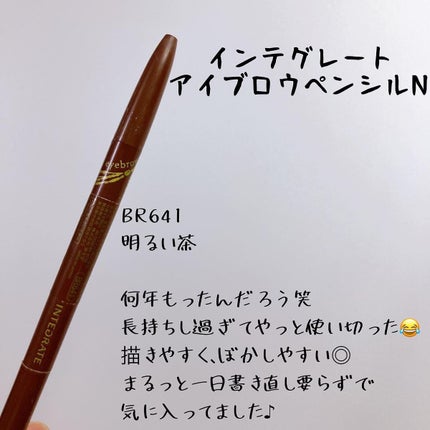 インテグレート
アイブロウペンシルN
eyebro
INTEGRATE
BR641
明るい茶
何年もったんだろう笑
長持ちし過ぎてやっと使い切った😂
描きやすく、ぼかしやすい◎
まるっと一日書き直し要らずで
気に入ってました♪